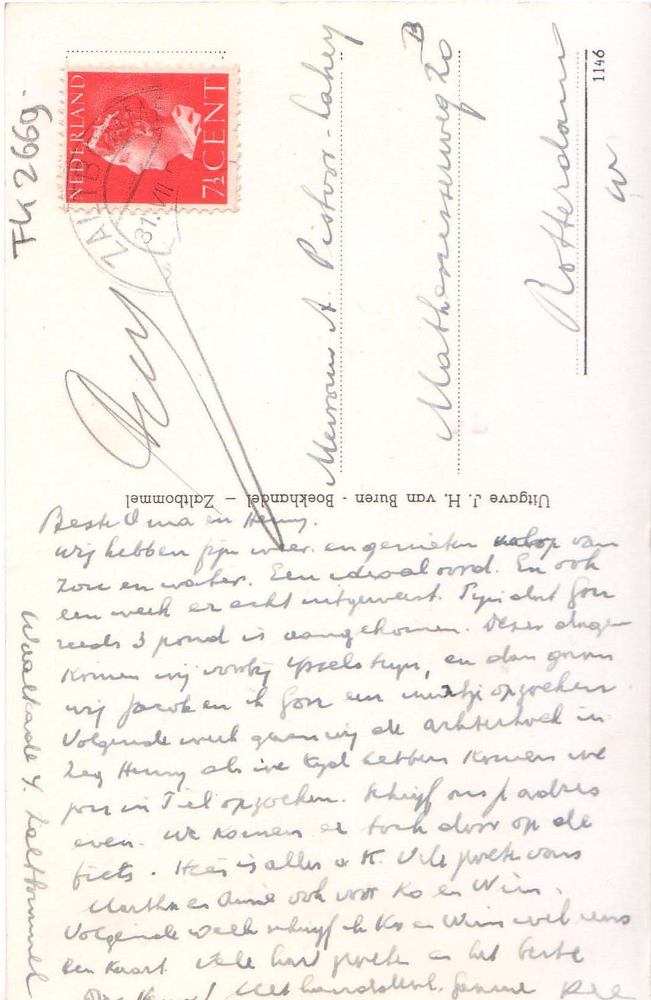 TH 2669.
NEDERLAND
7½ CENT
ZALTB
31 VII
Mevrouw A. Pistoor-Lahey
Mathenesserweg 20 B
Rotterdam
W
1146
Uitgave J. H. van Buren - Boekhandel – Zaltbommel
Beste Oma en Henny.
wij hebben fijn weer en genieten volop van
zon en water. Een ideaal oord. En ook
een week er echt uitgeweest. Fijn dat Gon
reeds 3 pond is aangekomen. Dezer dagen
komen wij voorbij IJsselsteijn, en dan gaan
wij Jacob en ik Gon een uurtje opzoeken
Volgende week gaan wij de achterhoek in
Zeg Henny als we tijd hebben komen we
jou in Tiel opzoeken. Schrijf ons je adres
even. We komen er toch door op de
fiets. Hier is alles o K. Vele groeten van
Martha en Annie ook voor Ko en Wim.
Volgende week schrijf ik Ko en Wim wel eens
een kaart. Vele hart groeten en het beste
Waalkade 4. Zaltbommel